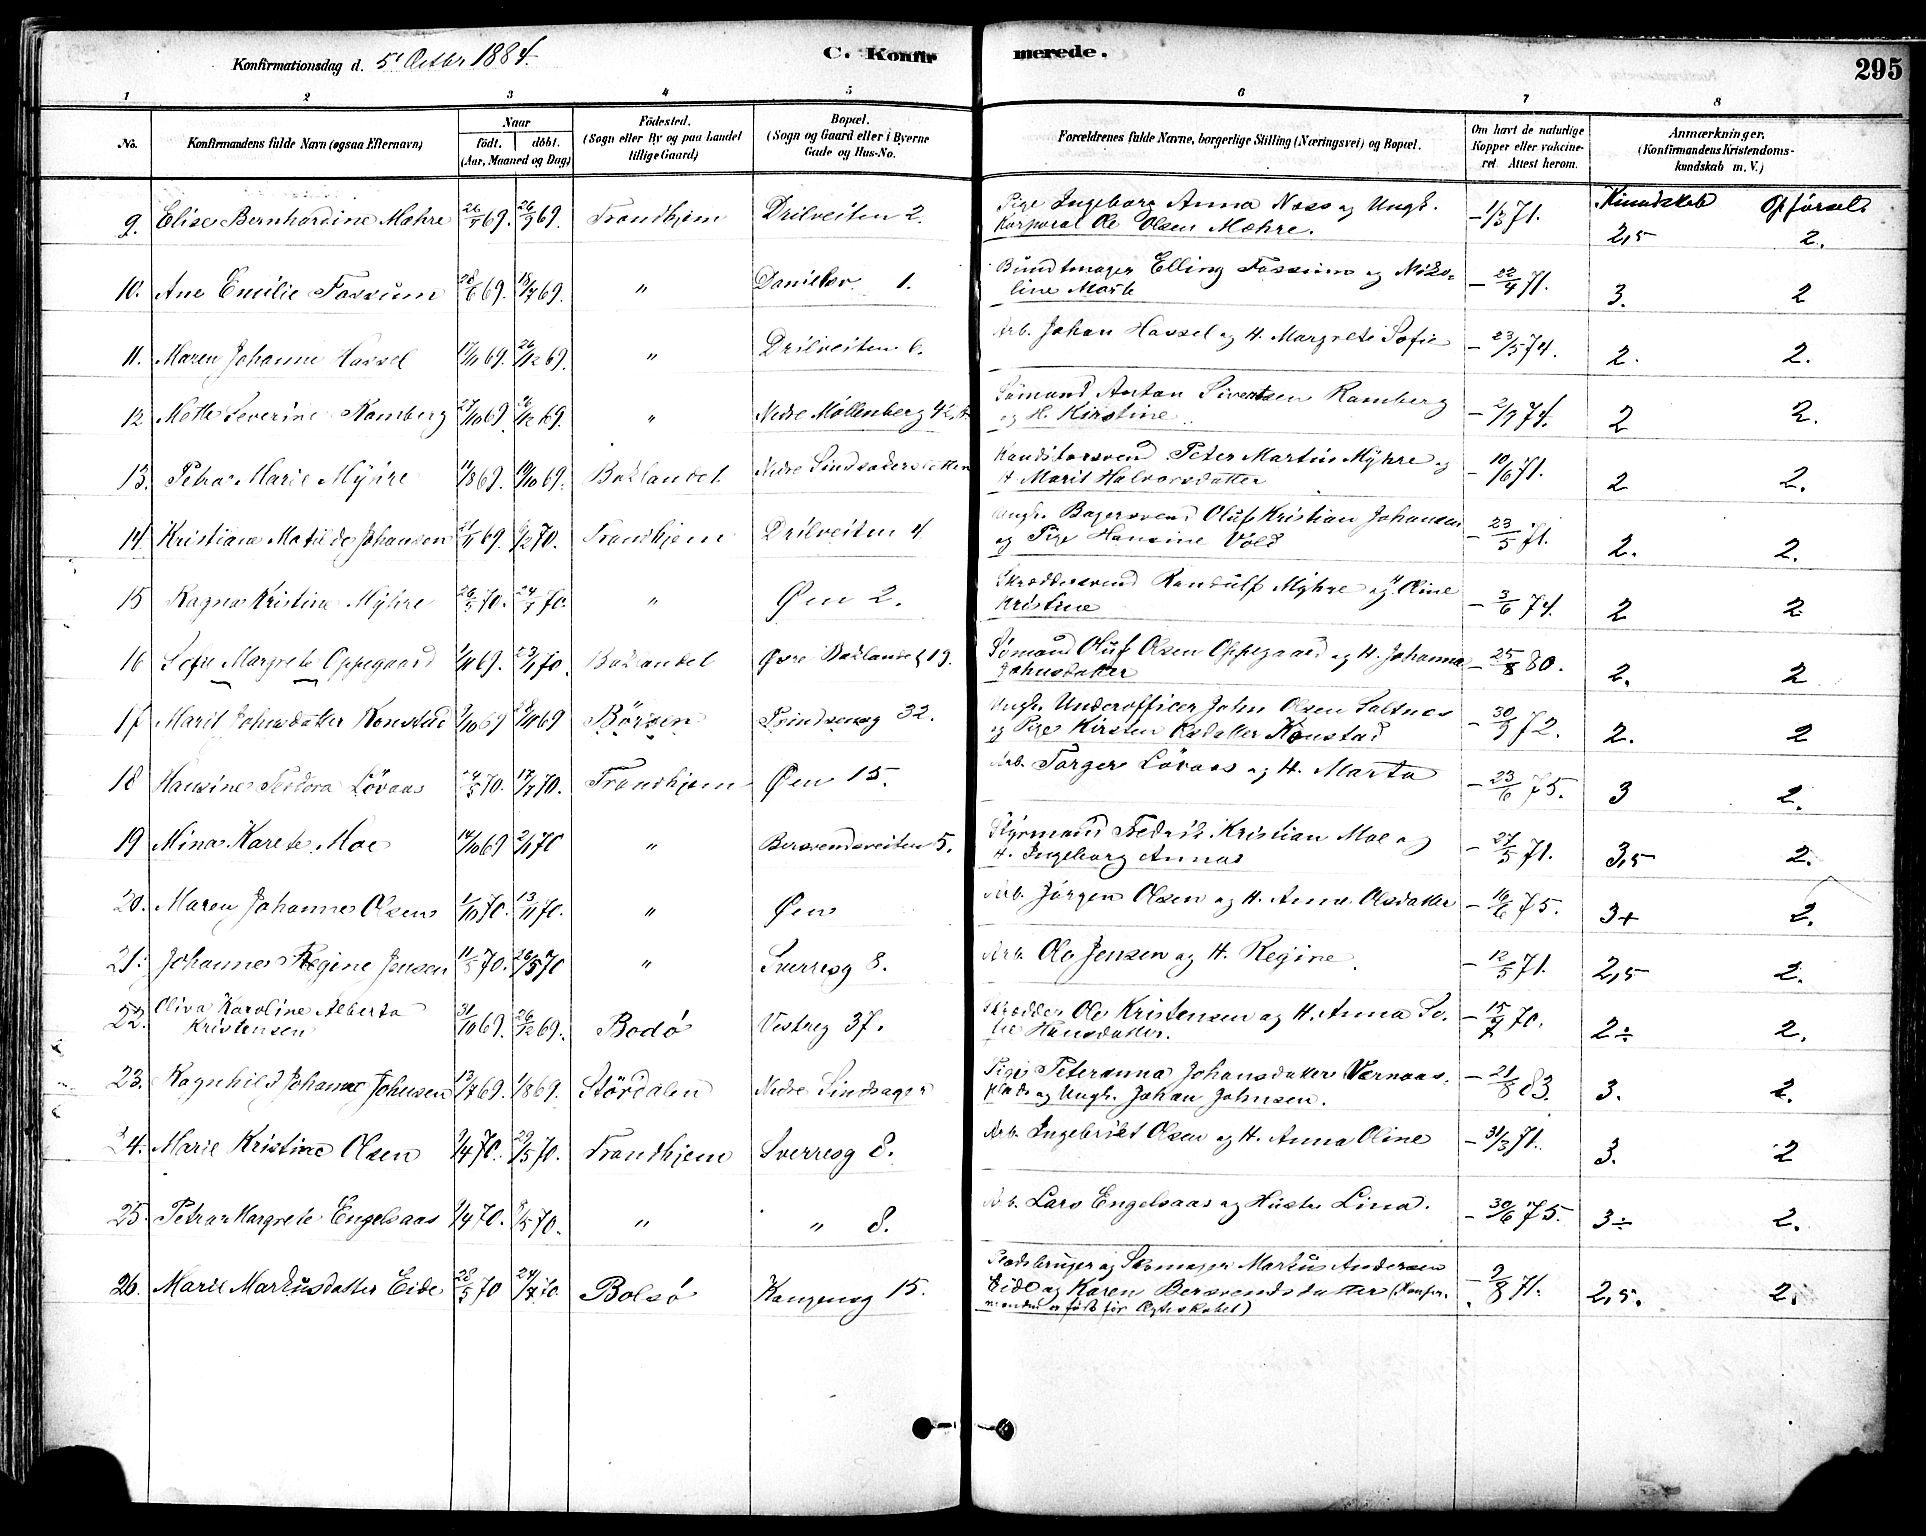 Konfirmationsdag d. 5t Octbr 1884. C. Konfirmerede. 295
1 2 3 4 5 6 7 8
No. Konfirmandens fulde Navn (ogsaa Efternavn) Naar födt. döbt. (Aar, Maaned og Dag) Födested. (Sogn eller By og paa Landet tillige Gaard) Bopæl. (Sogn og Gaard eller i Byerne Gade og Hus-No. Forældrenes fulde Navne, borgerlige Stilling (Næringsvei) og Bopæl. Om havt de naturlige Kopper eller vaccineret. Attest herom. Anmærkninger. (Konfirmandens Kristendomskundskab m. V.)
Kundskab Opförsel
9. Elise Bernhardine Mæhre 69. 26/9 69. Trondhjem Drilveiten 2. Pige Ingeborg Anna Næss og Ungk.
Korporal Ole Olsen Mæhre. 71. 2,5 2.
10. Ane Emilie Fossum 69. 69. " 1. Bundtmager Elling Fossum og
line Marte - 22/4 71. 3. 2
11. Maren Johanne Hassel 69. 26/12 69. " Drilveiten 6. Arb. Johan Hassel og H. Margrete Sofie - 23/5 74. 2. 2.
12 Mette Severine Ramberg 27/10 69. 69. " Nedre Möllenberg 42 Sömand Anton Sivertsen Ramberg
og H. Kirstine - 2/9 74. 2 2.
13. Petra Marie Myhre 11/8 69. 10/10 69. Baklandet Nedre Konditorsvend Peter Martin Myhre og
H Marit Halvorsdatter - 10/6 71. 2 2.
14. Kristiane Matilde Johansen 69. 70. Trondhjem Drilveiten 4 Ungk. Bagersvend Oluf Kristian Johansen
og Pige Hansine Vold - 23/5 71. 2. 2.
15 Ragna Kristine Myhre 70. 70. " Øen 2. Skræddersvend Randulf Myhre og H Oline
Kristine - 3/6 74. 2 2
16 Sofie Margrete Oppegaard 69. 23/1 70. Baklandet Øvre Baklandet 19. Sömand Oluf Olsen Oppegaard og H. Johanna
Johnsdatter - 25/8 80. 2. 2
17 Marit Johnsdatter Konstad 69 69 Börsen Prindsensg 32. Ungk. Underofficer John Olsen Saltnes
og Pige Kirsten Olsdatter Konstad - 30/9 72. 2. 2
18 Hansine Teodora Lövaas 70. 17/7 70. Trondhjem Øen 15. Arb. Torger Lövaas og H. Marta - 23/6 75. 3 2.
19 Mina Karete Moe 14/10 69 2/1 70 " Bersvendsveiten 5. Styrmand Fedrik Kristian Moe og
H. Ingeborg Anna - 27/5 71. 3,5 2.
20. Maren Johanne Olsen 1/10 70. 13/11 70. " Øen Arb. Jörgen Olsen og H. Anne Olsdatter - 16/6 75. 3+ 2.
21. Johanne Regine Jensen 70. 26/5 70 " Sverresg 8. Arb. Ole Jensen og H. Regine. - 12/5 71. 2,5 2.
22. Oliva Karoline Alberta
Kristensen 31/10 69. 26/12 69. Bodö Vestreg 37. Skrædder Ole Kristensen og H. Anna So-
fie Hansdatter. - 15/9 70. 2÷ 2.
23. Ragnhild Johanne Johnsen 13/7 69. 1/8 69. Stördalen Nedre Pige Peteranna Johansdatter Værnaas-
plads og Ungk. Johan Johnsen. - 21/8 83. 3. 2.
24. Marie Kristine Olsen 9/4 70. 29/5 70. Trondhjem Sverresg 8. Arb. Ingebrikt Olsen og H. Anna Oline - 31/3 71. 3. 2
25. Petra Margrete Engelsaas 70. 70. " " 8. Arb. Lars Engelsaas og Hustr Lina. - 30/6 75. 3÷ 2.
26. Marie Markusdatter Eide 28/5 70 24/7 70 Bolsö Kongensg 15. Pladsbruger og Markus Andersen
Eide og Karen Bersvendsdatter (Konfir-
manden er födt för Ægteskabet) - 9/8 71. 2,5. 2.